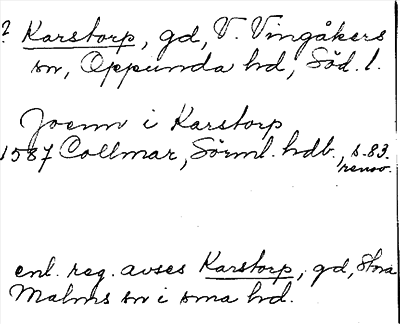 ? Karstorp, gd, V. Vingåkers
sn, Oppunda hd, Söd. l.
Joenn i Karstorp
1587 Collmar, Sörml. hdb., s. 83.
renov.
enl. reg. avses Karstorp, gd, Stora
Malms sn i sma hd.